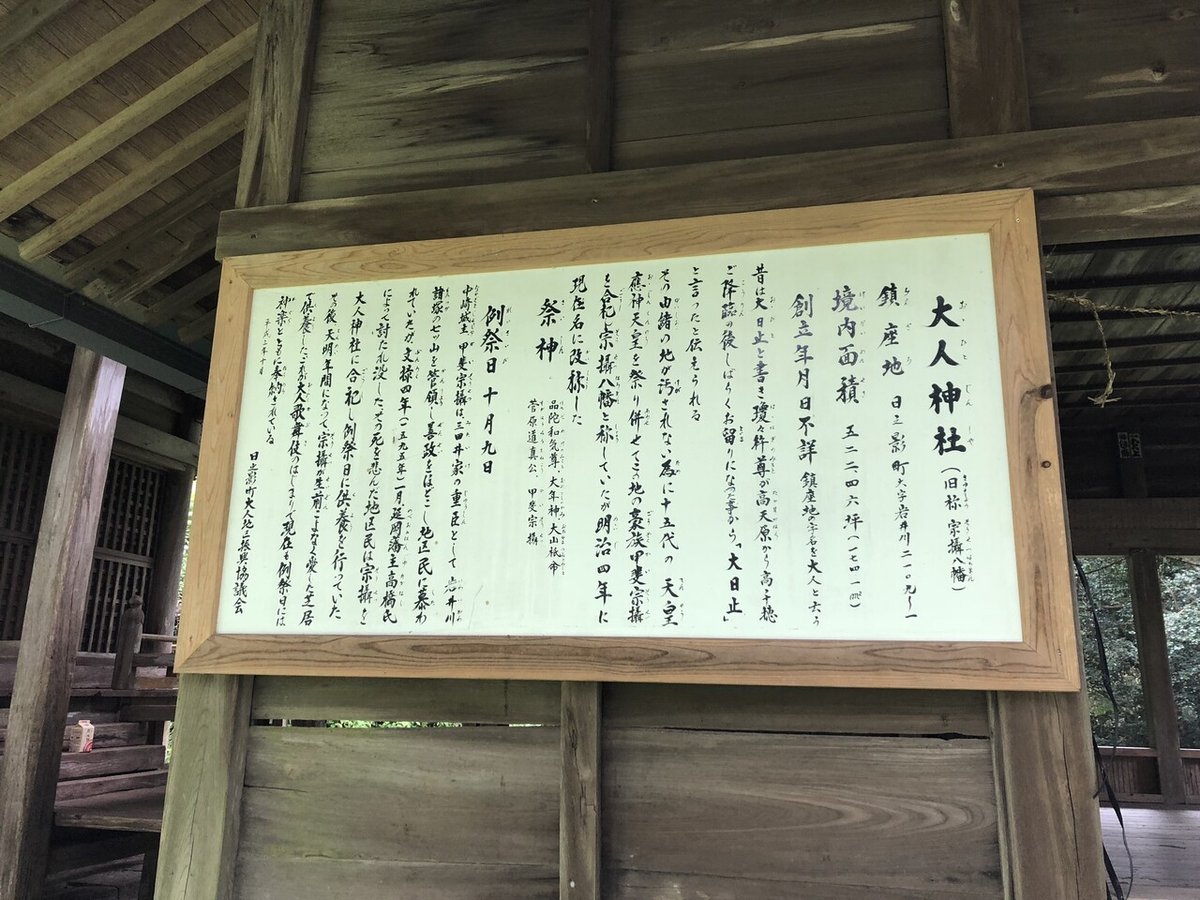 大人神社（旧称 宗攝八幡）
鎮座地 日之影町大字岩井川二一〇九ノ一
境内面積 五二二四六坪（一七四一㎡）
創立年月日不詳 鎮座地の字名を大人と云う
昔は大日止と書き瓊々杵尊が高天原から高千穂
ご降臨の後しばらくお留りになった事から「大日止」
と言ったと伝えられる
その由緒の地が汚されない為に十五代の天皇
應神天皇を祭り併せてこの地の豪族甲斐宗攝
を合祀し宗攝八幡と称していたが明治四年に
現在名に改称した
祭神 品陀和気尊、大年神、大山祇命
菅原道真公、甲斐宗攝
例祭日 十月九日
中崎城主 甲斐宗攝は、三田井家の重臣として 岩井川
諸塚の七ッ山を管領し善政をほどこし地区民に慕わ
れていたが、文禄四年（一五九五年）一月延岡藩主高橋氏
によって討たれ没した。その死を悲んだ地区民は宗攝を
大人神社に合祀し例祭日に供養を行っていた
その後、天明年間になって宗攝が生前こよなく愛した芝居
で供養した。これが大人歌舞伎のはじまりで現在も例祭日には
神楽とともに奉納されている
平成三年十月
日之影町大人地区振興協議会